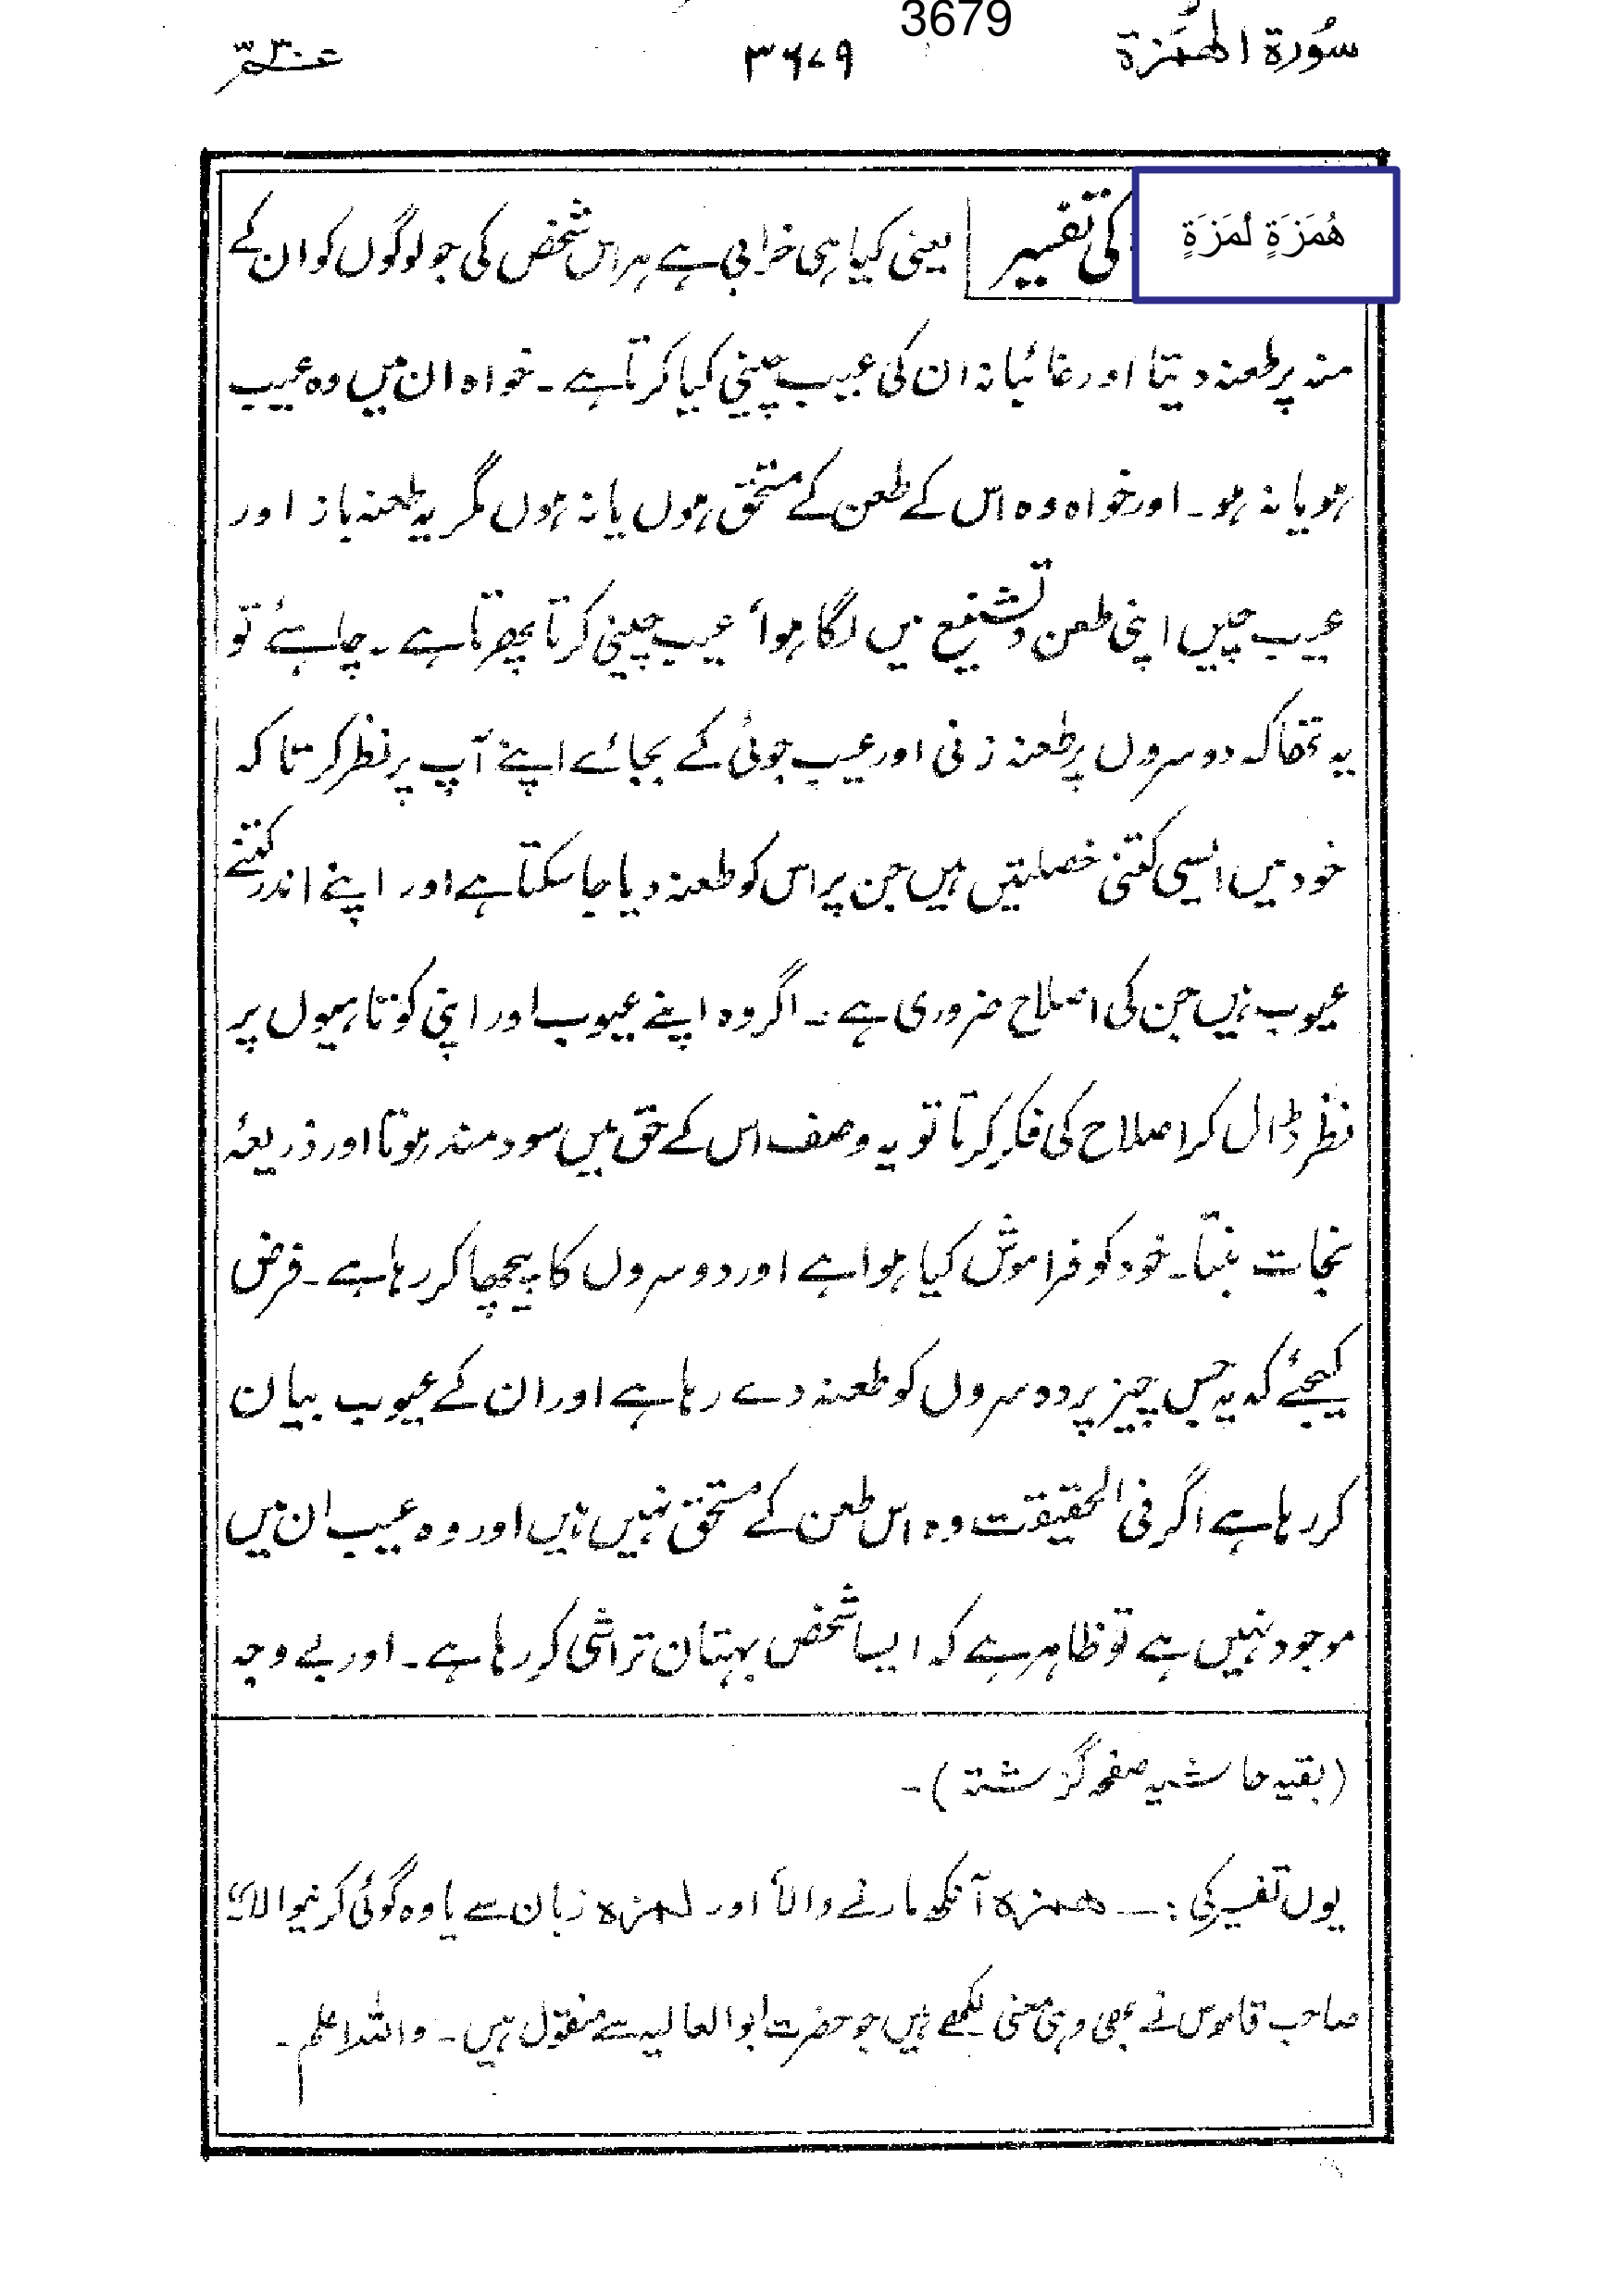 3679
سُورة الهُمَزة ۳۶۷۹ عمّ ۳۰
هُمَزَةٍ لُمَزَةٍ کی تفسیر یعنی کیا ہی خرابی ہے ہر اس شخص کی جو لوگوں کو ان کے
منہ پر طعنہ دیتا اور غائبانہ ان کی عیب چینی کیا کرتا ہے ۔ خواہ ان میں وہ عیب
ہو یا نہ ہو ۔ اور خواہ وہ اس کے طعن کے مستحق ہوں یا نہ ہوں مگر یہ طعنہ باز اور
عیب چیں اپنی طعن و تشنیع میں لگا ہوأ عیب چینی کرتا پھرتا ہے ۔ چاہئے تو
یہ تھا کہ دوسروں پر طعنہ زنی اور عیب جوئی کے بجائے اپنے آپ پر نظر کرتا کہ
خود میں ایسی کتنی خصلتیں ہیں جن پر اس کو طعنہ دیا جا سکتا ہے اور اپنے اندر کتنے
عیوب ہیں جن کی اصلاح ضروری ہے ۔ اگر وہ اپنے عیوب اور اپنی کوتاہیوں پر
نظر ڈال کر اصلاح کی فکر کرتا تو یہ وصف اس کے حق میں سود مند ہوتا اور ذریعۂ
نجات بنتا ۔ خود کو فراموش کیا ہوا ہے اور دوسروں کا پیچھا کر رہا ہے ۔ فرض
کیجئے کہ یہ جس چیز پر دوسروں کو طعنہ دے رہا ہے اور ان کے عیوب بیان
کر رہا ہے اگر فی الحقیقت وہ اس طعن کے مستحق نہیں ہیں اور وہ عیب ان میں
موجود نہیں ہے تو ظاہر ہے کہ ایسا شخص بہتان تراشی کر رہا ہے ۔ اور بے وجہ
(بقیہ حاشیہ صفحہ گزشتہ) ۔
یوں تفسیر کی :ــ ھمزہ آنکھ مارنے والا اور لمزہ زبان سے یا وہ گوئی کرنیوالا"
صاحب قاموس نے بھی وہی معنی لکھے ہیں جو حضرت ابو العالیہ سے منقول ہیں ۔ واللہ اعلم ۔